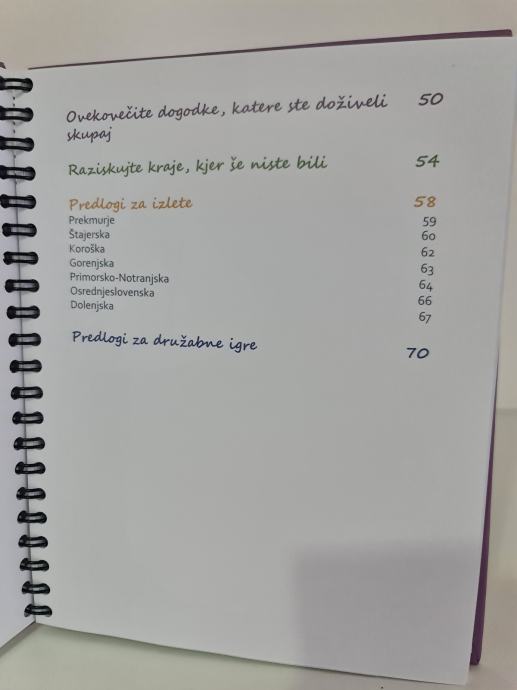 Ovekovečite dogodke, katere ste doživeli 50
skupaj
Raziskujte kraje, kjer še niste bili 54
Predlogi za izlete 58
Prekmurje 59
Štajerska 60
Koroška 62
Gorenjska 63
Primorsko-Notranjska 64
Osrednjeslovenska 66
Dolenjska 67
Predlogi za družabne igre 70